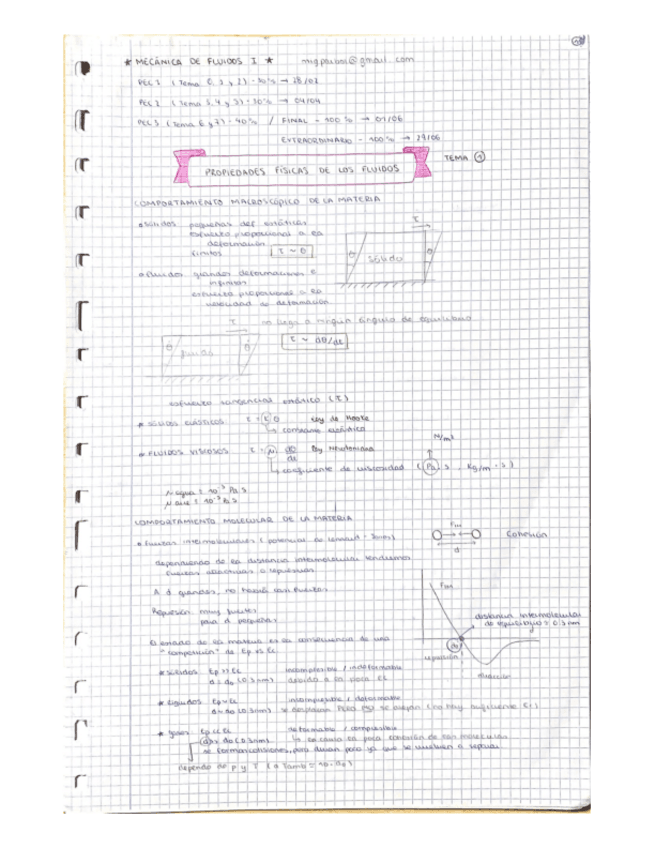 ★ MECÁNICA DE FLUIDOS I ★
PEC 1 (Tema 0, 1 y 2) - 30% →
PEC 2 (Tema 3, 4 y 5) - 30% → 04/04
PEC 3 (Tema 6 y 7) - 40% / FINAL - 100% → 01/06
EXTRAORDINARIO - 100% → 29/06
PROPIEDADES FÍSICAS DE LOS FLUIDOS
TEMA 1
COMPORTAMIENTO MACROSCÓPICO DE LA MATERIA
sólidos pequeñas def elásticas
esfuerzo proporcional a la
deformación
finitos τ ~ θ
τ
θ sólido θ
fluidos grandes deformaciones e
infinitas
esfuerzo proporcional a la
velocidad de deformación
τ no llega a ningún ángulo de equilibrio
τ ~ dθ/dt
θ fluido θ
esfuerzo tangencial (τ)
SÓLIDOS ELÁSTICOS ley de Hooke
constante elástica
N/m²
FLUIDOS VISCOSOS τ = μ dθ/dt ley Newtoniana
coeficiente de viscosidad (Pa·s, Kg/m·s)
μ agua = 10⁻³ Pa s
μ aire = Pa s
COMPORTAMIENTO MOLECULAR DE LA MATERIA
Fuerzas intermoleculares (potencial de Lennard-Jones)
d
Cohesión
dependiendo de la distancia intermolecular tendremos
fuerzas atractivas o repulsivas
A d grandes, no habrá casi fuerzas
Repulsión muy fuertes
para d pequeñas
distancia intermolecular
de equilibrio ≈ 0.3 nm
d₀
repulsión
atracción
El estado de la materia es la consecuencia de una
"competición" de Ep vs Ec
sólidos Ep >> Ec incompresible / indeformable
d = d₀ (0.3nm) debido a la poca Ec
líquidos Ep ~ Ec incompresible / deformable
d ~ d₀ (0.3nm) se desplazan PERO NO se escapan (no hay suficiente Ec)
gases Ep << Ec deformable / compresible
d >> d₀ (0.3nm) poca cohesión de las moléculas
se forman cohesiones, pero duran poco ya que se vuelven a separar
depende de p y T